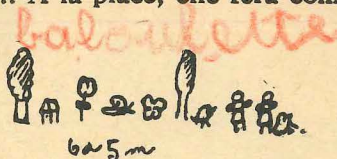 .. A la place, elle fera com
baloulette
6 a 5 m